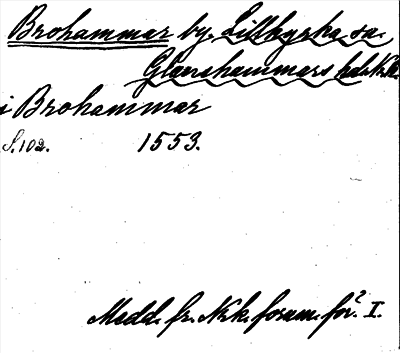 Brohammar by, Lillkyrka sn.
Glanshammars hd. Nrk.
i Brohammar
S. 102. 1553.
Medd. fr. Nrk. fornm. för. I.